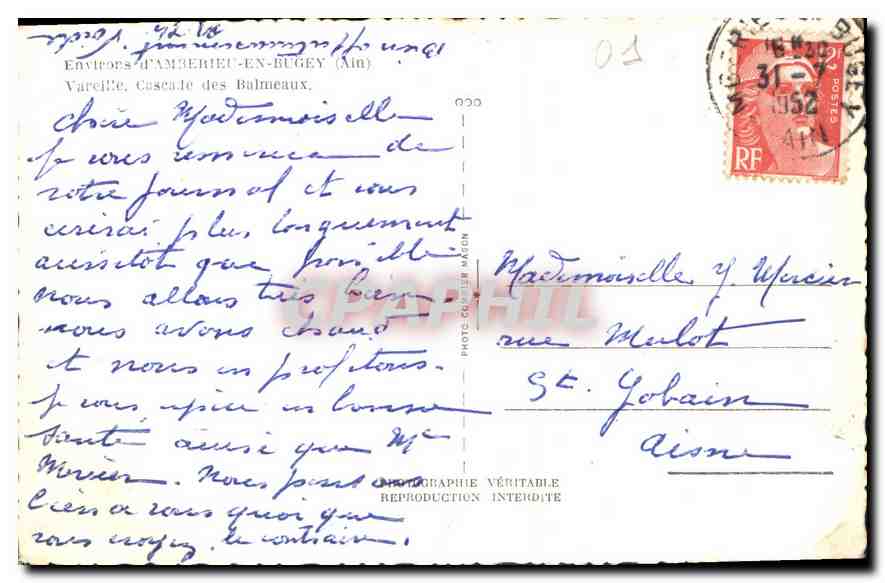 bien affectueusement
Environs d'AMBERIEU-EN-BUGEY (Ain)
Vareille, Cascade des Balmeaux.
01
chère Mademoiselle
je vous remercie de
votre journal et vous
écrirai plus longuement
aussitôt que possible
nous allons très bien
nous avons chaud
et nous en profitons.
je vous espère en bonne
santé ainsi que Mme
Mercier. Nous pensons
bien à vous quoi que
vous croyez le contraire.
PHOTO-COMBIER MACON
PHOTOGRAPHIE VÉRITABLE
REPRODUCTION INTERDITE
31-7
1952
AIN
2F
POSTES
RF
Mademoiselle Y. Mercier
rue Mulot
St. Gobain
Aisne
CPAPHIL